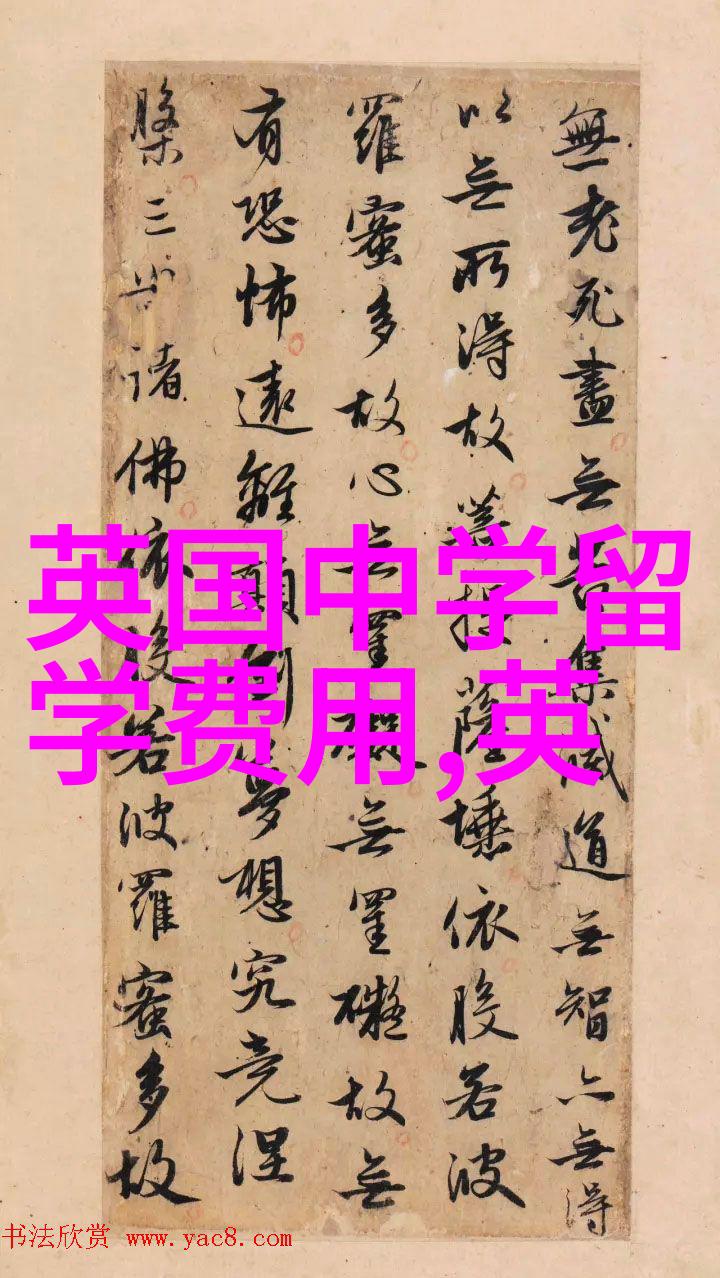 無老死盡無苦集滅道無智亦無得
以無所得故菩提薩埵依般若波
羅蜜多故心無罣礙無罣礙故無
有恐怖遠離顛倒夢想究竟涅
槃三世諸佛依般若波羅蜜多故
英国中学留
学费用,英
书法欣赏 www.yac8.com